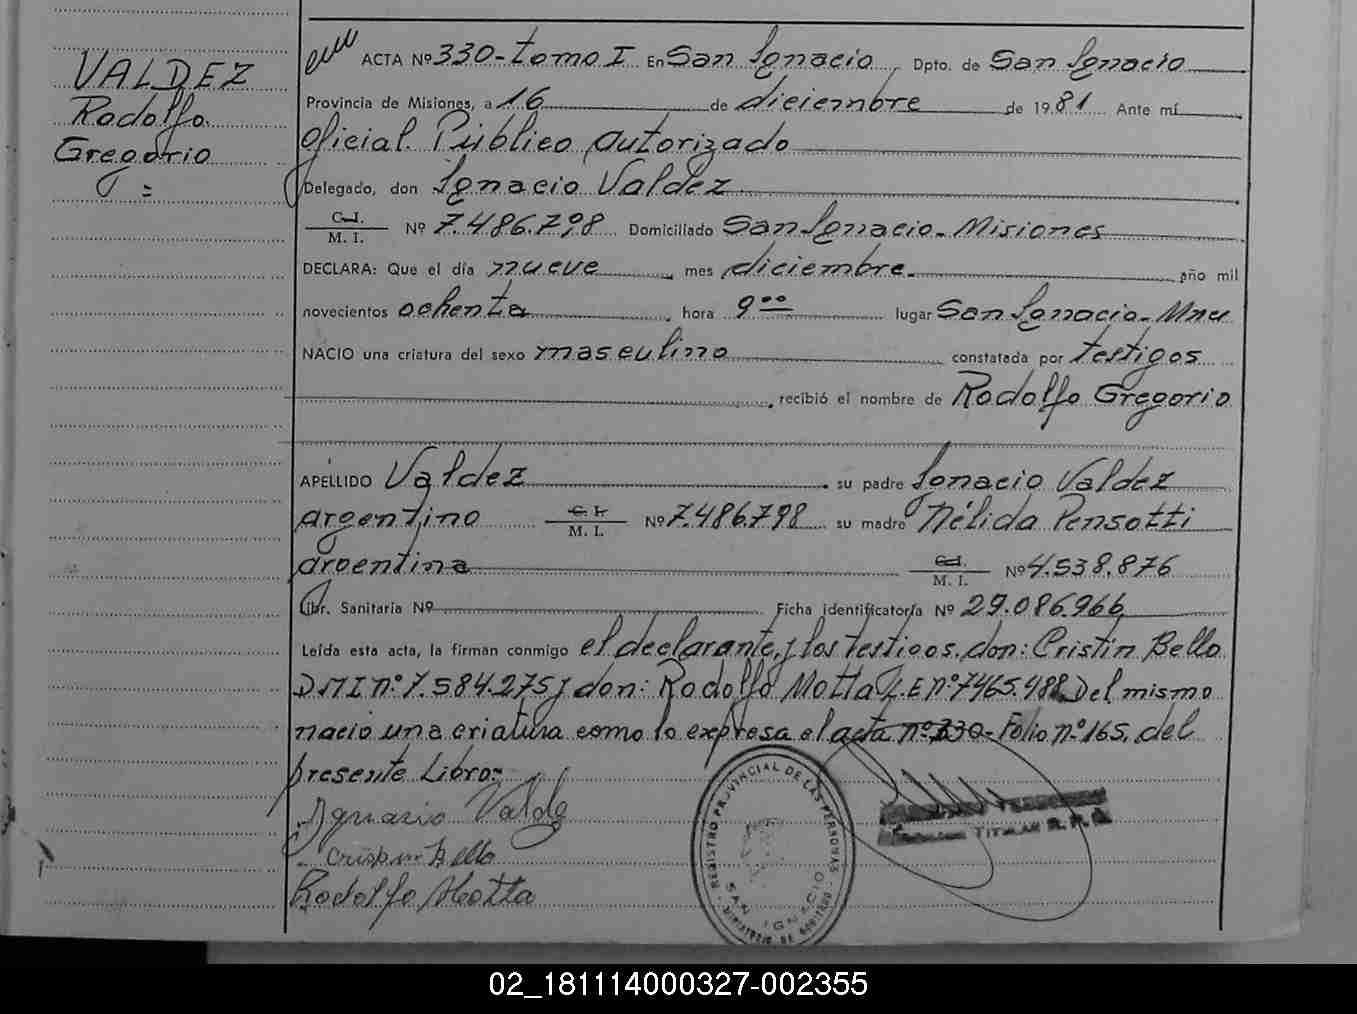 VALDEZ
Rodolfo
Gregorio
=
ACTA Nº 330-tomo I En San Ignacio Dpto. de San Ignacio
Provincia de Misiones, a 16 de diciembre de 1981 Ante mí
Oficial Público Autorizado
Delegado, don Ignacio Valdez
C.I.
M. I. Nº 7.486.798 Domiciliado San Ignacio-Misiones
DECLARA: Que el día nueve, mes diciembre año mil
novecientos ochenta, hora 9°° lugar San Ignacio-Mnes
NACIO una criatura del sexo masculino constatada por testigos
, recibió el nombre de Rodolfo Gregorio
APELLIDO Valdez su padre Ignacio Valdez
argentino C. I. M. I. Nº 7.486.798 su madre Nélida Pensotti
argentina C.I. M. I. Nº 4.538.876
Libr. Sanitaria Nº Ficha identificatoria Nº 29.086.966
Leída esta acta, la firman conmigo el declarante, y los testigos, don: Cristin Bello
DMI nº 7.584.275 y don: Rodolfo Motta L.E nº 7465.488 Del mismo
nacio una criatura como lo expresa el acta nº 330-Folio nº 165, del
presente Libro:-
Ignacio Valde
Crispin Bello
Rodolfo Motta
REGISTRO PROVINCIAL DE LAS PERSONAS
SAN IGNACIO
MINISTERIO DE GOBIERNO
TITULAR R. P.
02_181114000327-002355